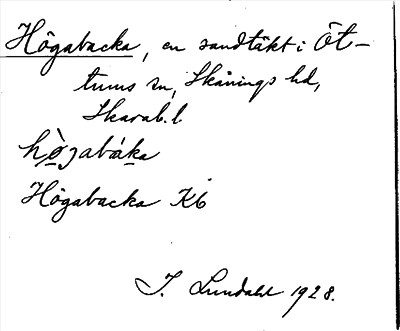 Högabacka, en sandtäkt i Öt-
tums sn, Skånings hd,
Skarab. l.
hø̀gabáka
Högabacka K6
I. Lundahl 1928.